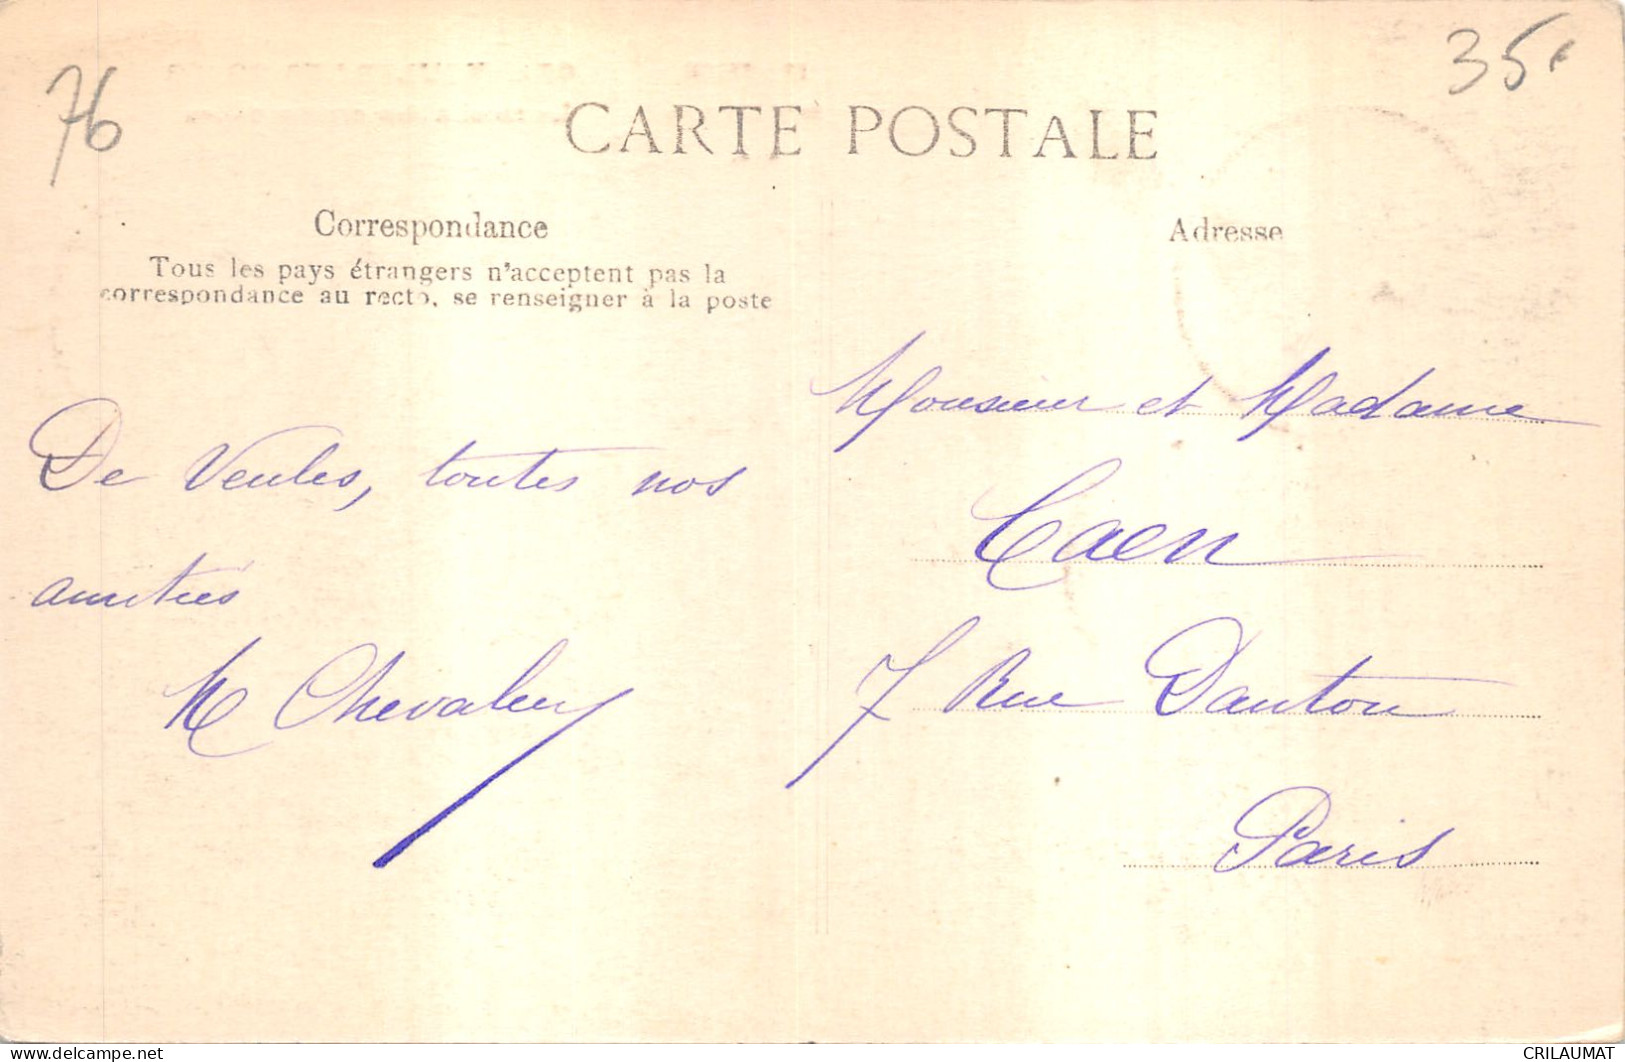 76
35€
CARTE POSTALE
Correspondance
Tous les pays étrangers n'acceptent pas la
correspondance au recto, se renseigner à la poste
De Veules, toutes nos
amitiés
Adresse
Monsieur et Madame
Caen
7 Rue Danton
Paris
CRILAUMAT